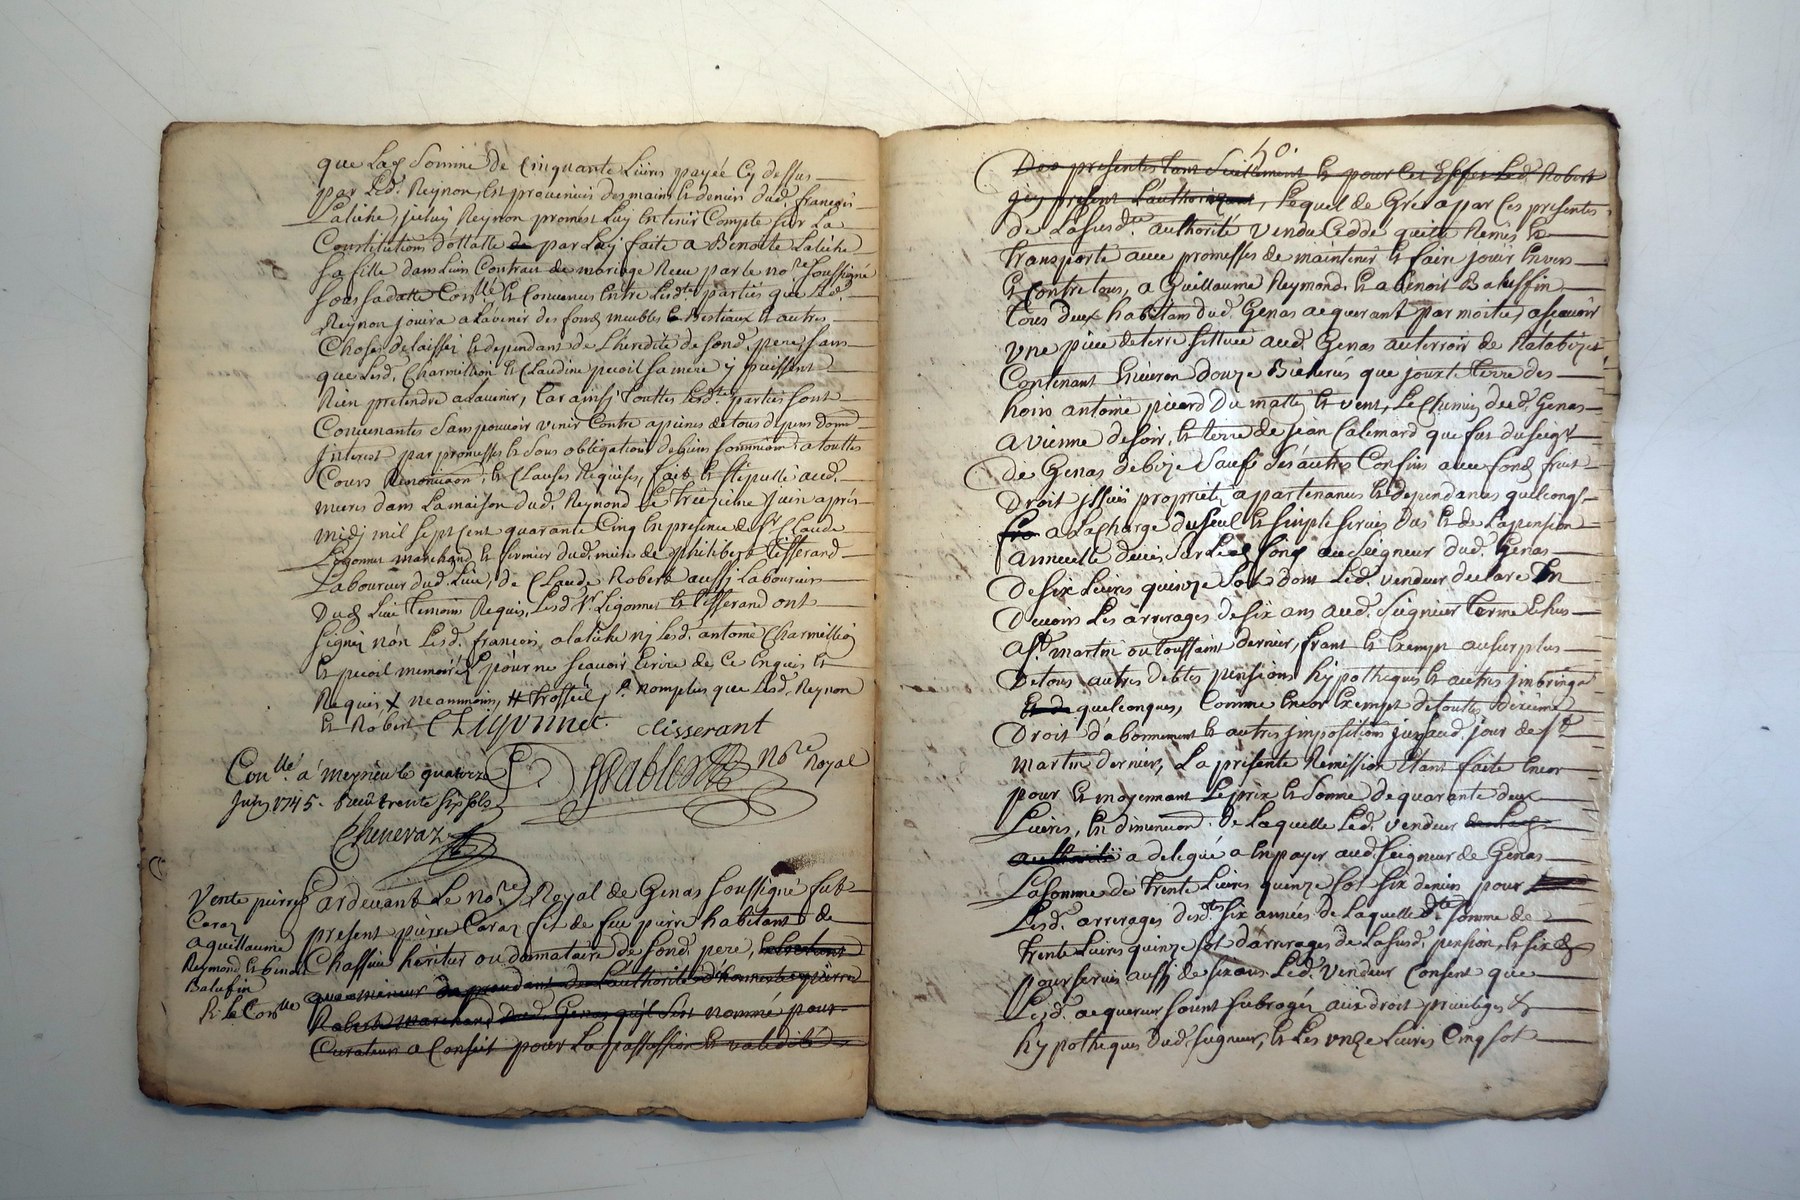 que lad somme de Cinquante Livres payée Cy dessus
par led. Reynon, est provenües des mains & deniers dud. françois
Latiche, jceluy Reynon promest luy en tenir Compte sur La
Constitution dottalle de par Luy faite a Benoite Latiche
sa fille dans Leur Contract de mariage Receu par le no.re soussigné
sous sa datte Con.llé & Convenus Entre Lesd.tes parties que Led.
Reynon jouira a Lavenir des fonds meubles & Bestiaux & autres
Choses delaissés & dependant de L'heredité de sond. pere, sans
que Lesd. Charmillion & Claudine pecoil sa mere y puissent
Rien pretendre a Lavenir, Car ainsj Touttes Lesd.tes parties sont
Convenantes sans pouvoir venir Contre a peines de tous depens dom.
jnterest par promesses & sous obligation de biens soumission a touttes
Cours Renonciaon, & Clauses Requises, fait & stipullé aud.
mieres dans La maison dud. Reymond le Treizieme Juin apres
midj mil sept Cent quarante Cinq En presence de S.r Claude
Ligonnet marchand & fermier dud. mieres de philibert Tisserand
Laboureur dud. Lieu, de Claude Robert aussj Laboureur
Dud. Lieu Temoins Requis, Lesd. S.r Ligonnet & Tisserand ont
signé non Lesd. françois, a latiche nj Lesd. antoine Charmillion
& pecoil mere pour ne scavoir Ecrire de Ce Enquis &
Requis, neammoins, nomplus que Lesd. Reynon
& Robert CLigonnet. Clisserant
no.re Royal
Con.llé a Meyzieu le quatorze
Juin 1745. Receu trente six sols
Cheneraz
Vente pierre
Caraz
a guillaume
Reymond & benoit
Balufin
& La Con.lle
Pardevant Le no.re Royal de Genas soussigné fut
present pierre Caraz fils de feu pierre habitant de
Chassieu heritier ou donnataire de sond. pere,
que mineur de prendant de L'authorité d'honneste pierre
Robert marchand dud. Genas qu'il s'est nommé pour
Curateur a Conseil pour La passassion & validité
40.
Des presentes tant seullement & pour Cet Effet Led. Robert
jcy present L'authorizant, Lequel de Gré a par Ces presentes
de La susd. authorité vendu Cedde quitte Remis &
transporte avec promesses de maintenir & faire jouir Envers
& Contre tous, a Guillaume Reymond & a benoit Baluffin
Tous deux habitans dud. Genas acquerant par moitié, ascavoir
une piece de terre sittuée aud. Genas au terroir de
Contenant Environ douze Bicherées que jouxte terre des
hoirs antoine picard Du matin & vent, Le Chemin dud. Genas
a vienne de soir, & terre de jean Calemard que fut du seig.r
de Genas de bize sauf ses autres Confins avec fonds fruit
Droit jssües proprietés appartenances & dependances quelconqs
a La charge du seul & simple servis Das & de La pension
annuelle deüe sur led. fond au seigneur dud. Genas
De six Livres quinze sol dont Led. vendeur declare En
Devoir Les arrerages de six ans aud. seigneur Terme Echus
a S.t martin ou toussaint dernier, franc & Exempt au surplus
De tous autres debtes pensions hypotheques & autres
quelconques, Comme Encor Exempt de touttes dixieme
Droit d'abonnement & autres jmpositions jusqu'aud. jour de S.t
martin dernier, La presente Remission Etant faite Encor
pour & moyennant Le prix & somme de quarante deux
Livres, En diminution de Laquelle Led. vendeur
authorité a delegué a En payer aud. seigneur de Genas
La somme de trente Livres quinze sol six deniers pour
Lesd. arrerages desd.tes six années de Laquelle d.te somme de
trente Livres quinze sol d'arrerages de La susd. pension, & six d.
pour servis aussj de six ans Led. vendeur Consent que
Lesd. acquereur soint subrogés aux droit privileges &
hypotheques dud. seigneur, & Les unze Livres Cinq sol